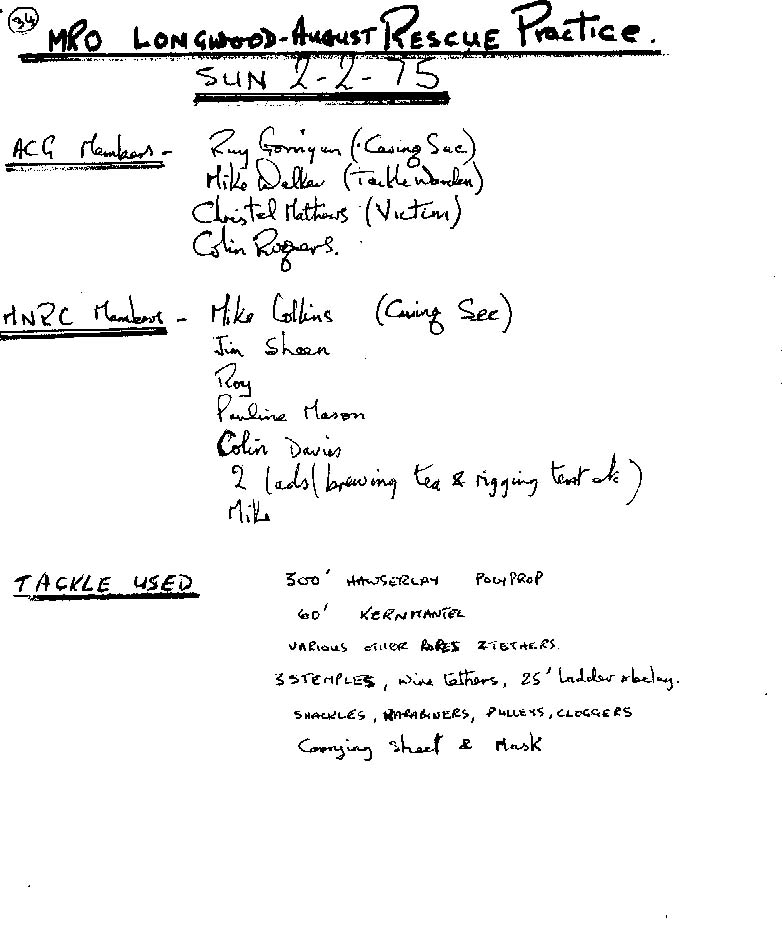 34
MRO LONGWOOD-AUGUST RESCUE Practice.
SUN 2-2-75
ACG Members - Ray (Caving Sec)
Mike Walker (Tackle Warden)
Christel Mathews (Victim)
Colin Rogers.
MNRC Members - Mike Collins (Caving Sec)
Jim Sheen
Roy
Pauline Mason
Colin Davies
2 lads (brewing tea & rigging tent etc)
Mike
TACKLE USED 300' HAWSERLAY POLYPROP
60' KERNMANTEL
VARIOUS OTHER ROPES & TETHERS.
3 STEMPLES, wire tethers, 25' ladder & belay.
SHACKLES, KARABINERS, PULLEYS, CLOGGERS
Carrying sheet & Mask